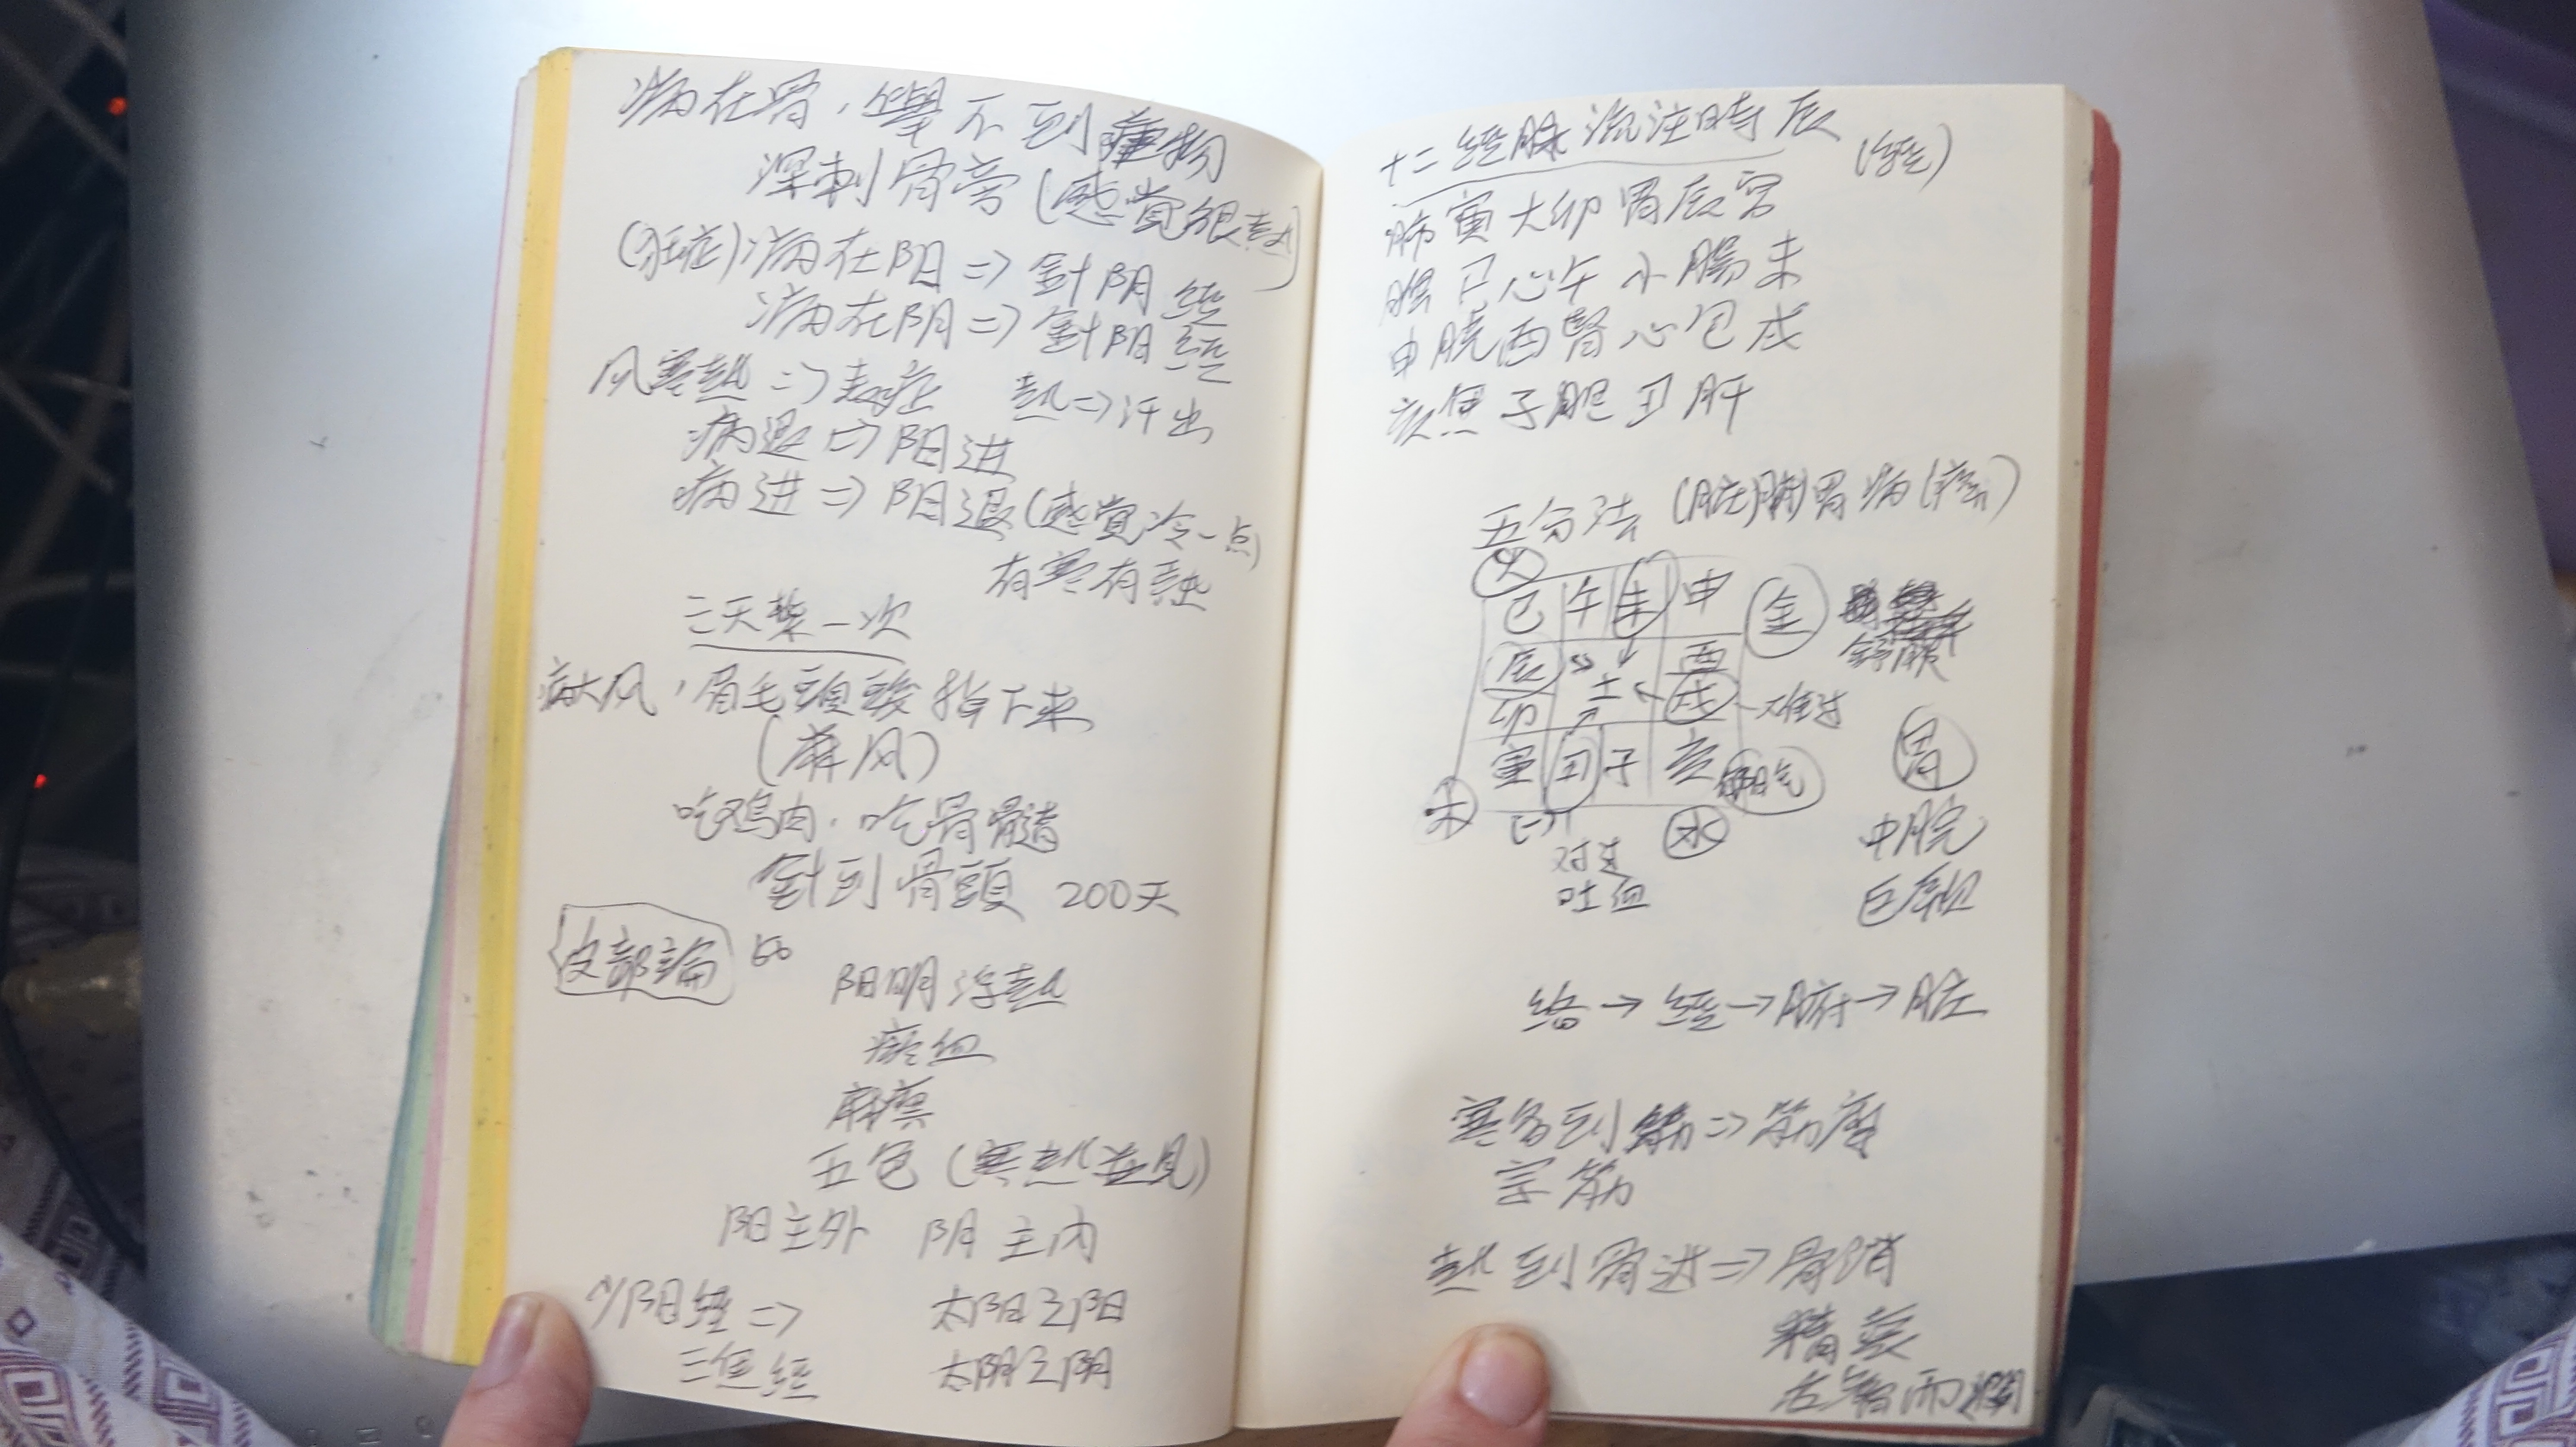 病在骨,摸不到腫物
深刺骨旁(感觉很热)
(狂症)病在阳=>針阳經
病在阴=>針阴經
风寒熱=>表症 熱=>汗出
病退=>阳进
病进=>阳退(感觉冷一点)
有寒有熱
三天
一次
病大风,眉毛頭髮掉下来
(麻风)
吃鸡肉.吃骨髓
針到骨頭 200天
皮部論
阳明浮熱
瘀血
麻痹
五色(寒热并见)
阳主外 阴主内
少阳經=> 太阳之阳
三焦經 太阴之阴
十二經脉流注時辰
(經)
肺寅大卯胃辰宮
脾巳心午小腸未
申膀酉腎心包戌
亥焦子胆丑肝
五分法(脏腑)胃病
火
巳 午 未 申 金
辰 酉
土 戌
卯
寅 丑 子 亥 陽气
木 水
吐血
胃
中脘
巨阙
络→經→腑→脏
寒多到
=>筋
筋
熱到骨
=>骨消